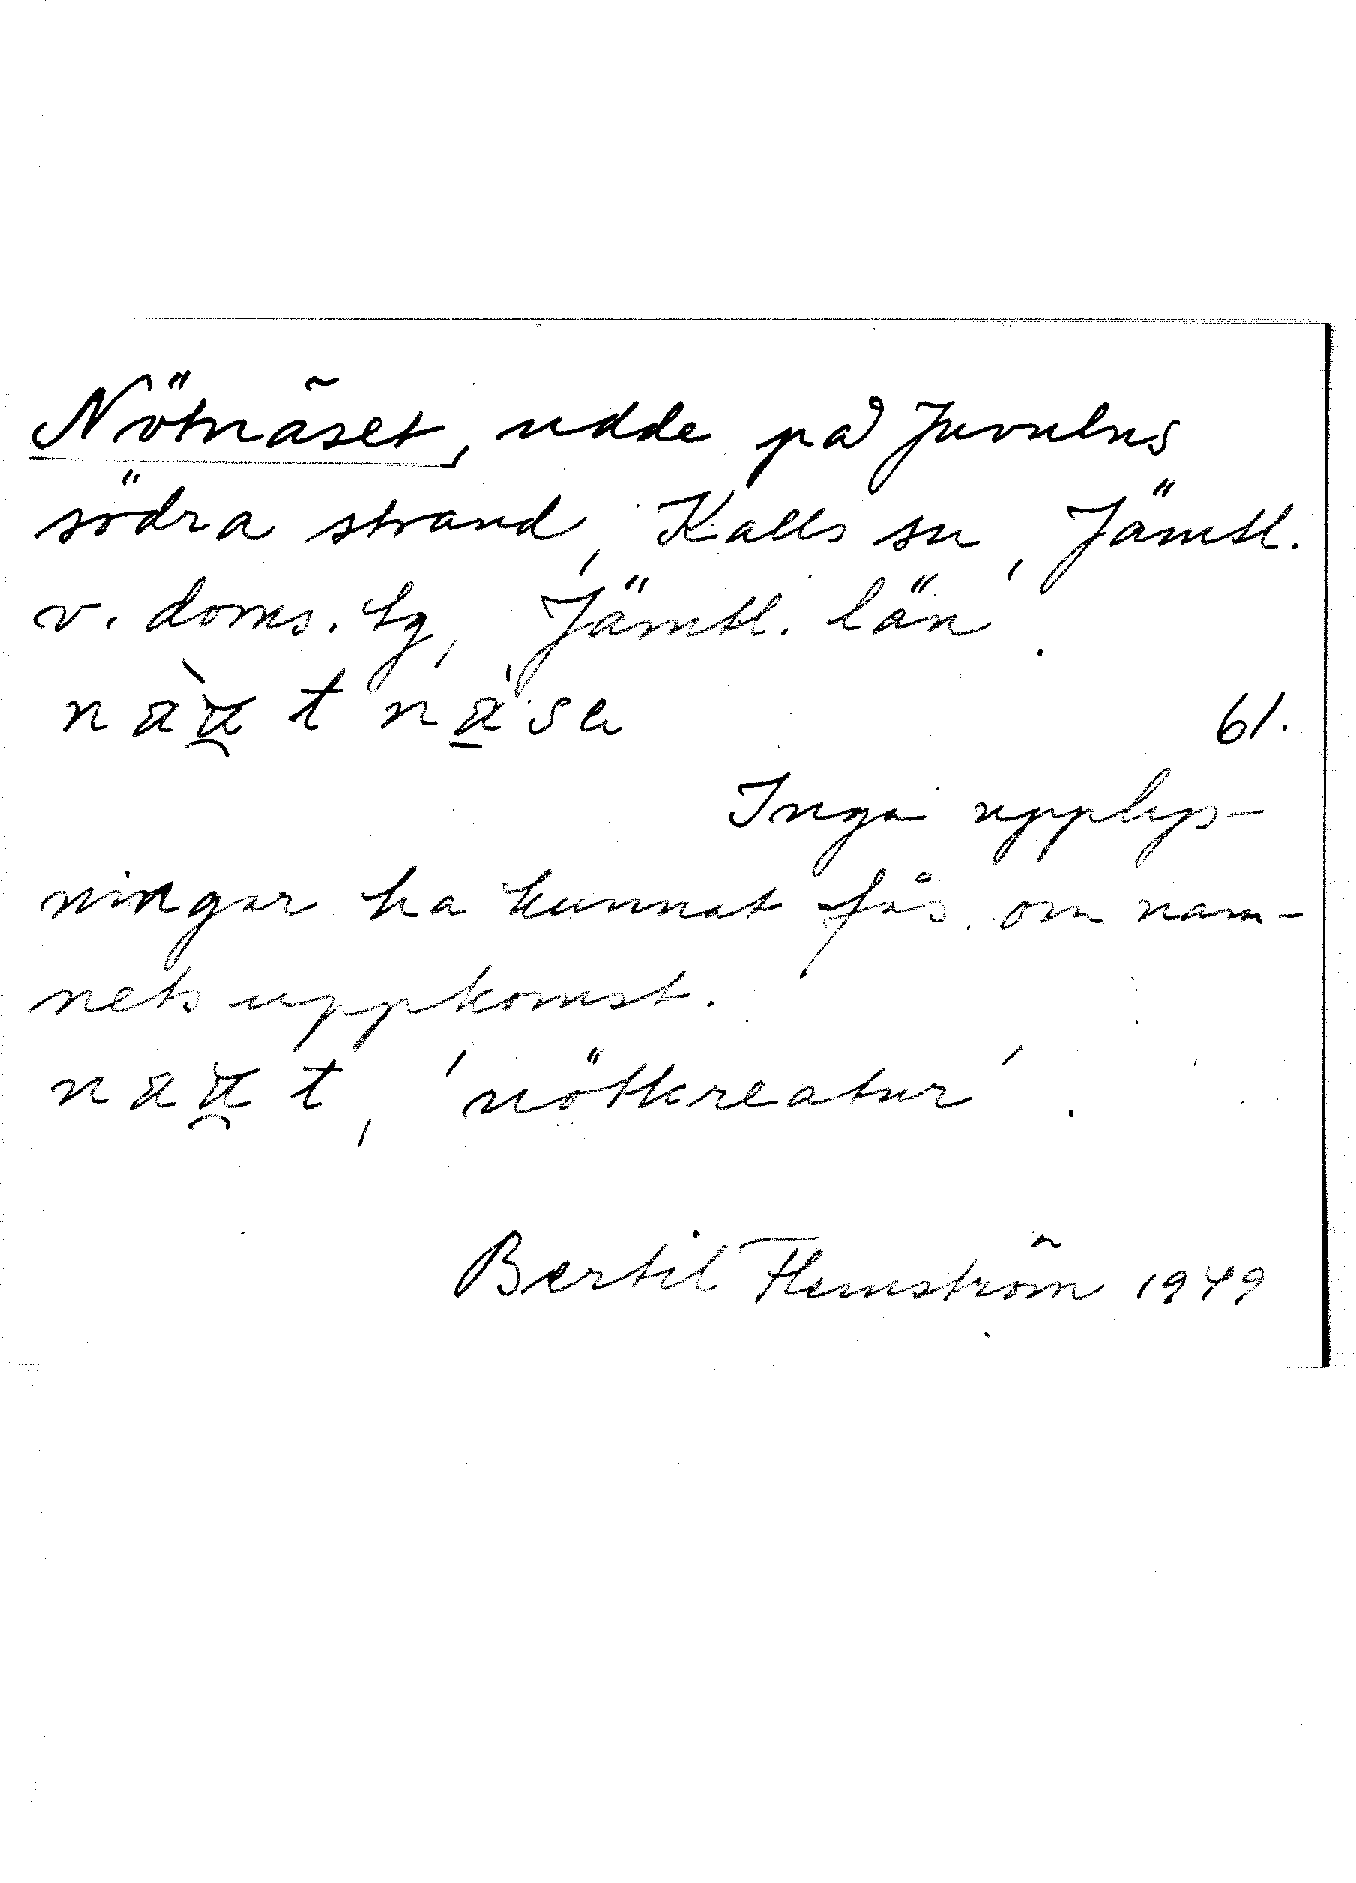 Nötnäset, udde på Juvulns
södra strand, Kalls sn, Jämtl.
v. doms. tg, Jämtl. län.
61.
Inga upplys-
ningar ha kunnat fås om nam-
nets uppkomst.
'nötkreatur'.
Bertil Flemström 1949